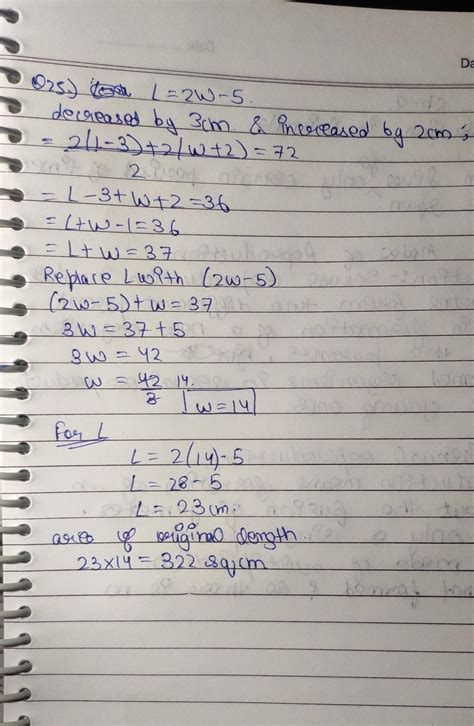 Date
Da
Q25.) L=2w-5.
decreased by 3cm & increased by 2cm ;
= 2(L-3)+2(w+2)=72
2
= L-3+w+2=36
= L+w-1=36
= L+w=37
Replace L with (2w-5)
(2w-5)+w=37
3w=37+5
3w=42
w=42 14.
3 w=14
For L
L= 2(14)-5
L= 28-5
L= 23cm.
area of original length.
23x14=322 sq cm